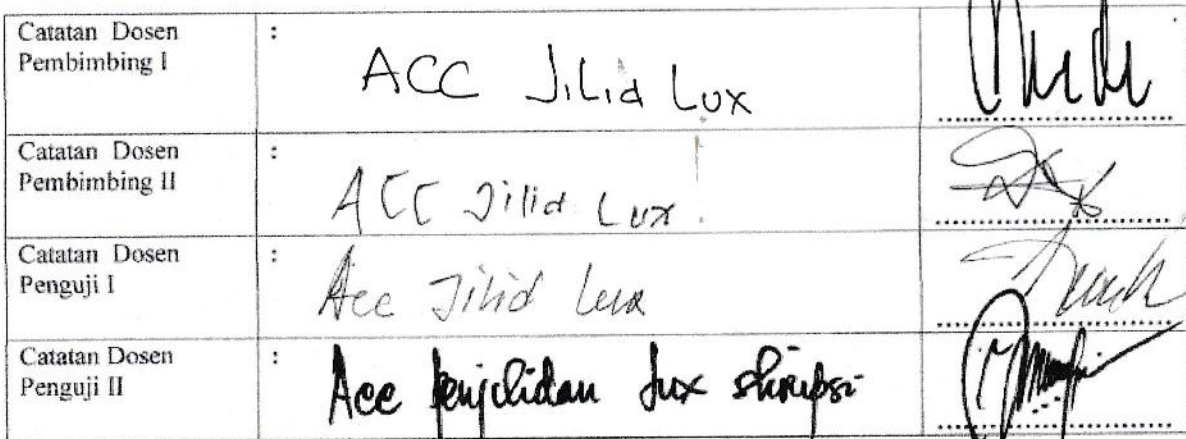 Catatan Dosen
Pembimbing I
: ACC Jilid Lux
Catatan Dosen
Pembimbing II
: ACC Jilid Lux
Catatan Dosen
Penguji I
: Acc Jilid Lux
Catatan Dosen
Penguji II
: Acc penjilidan lux skripsi